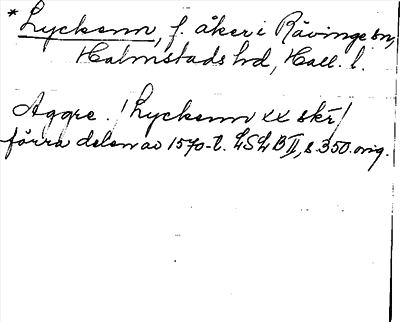 *Lyckenn, f. åker i Rävinge sn,
Halmstads hd, Hall. l.
Aggre. /Lyckenn xx skr/
förra delen av 1570-t. LSLB II, s. 350. orig.